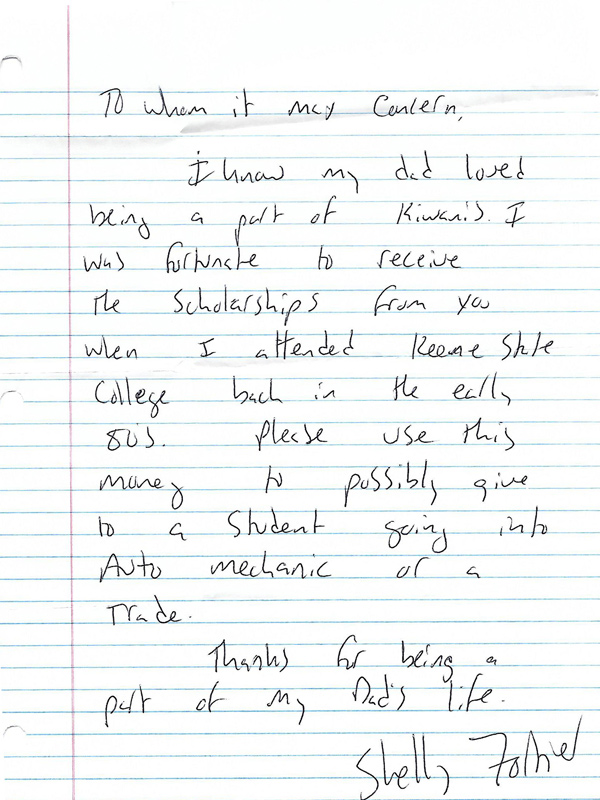 To whom it may Concern,
I know my dad loved
being a part of Kiwanis. I
was fortunate to receive
the Scholarships from you
when I attended Keene State
College back in the early
80's. Please use this
money to possibly give
to a student going into
Auto mechanic or a
Trade.
Thanks for being a
part of my Dad's life.
Shelly